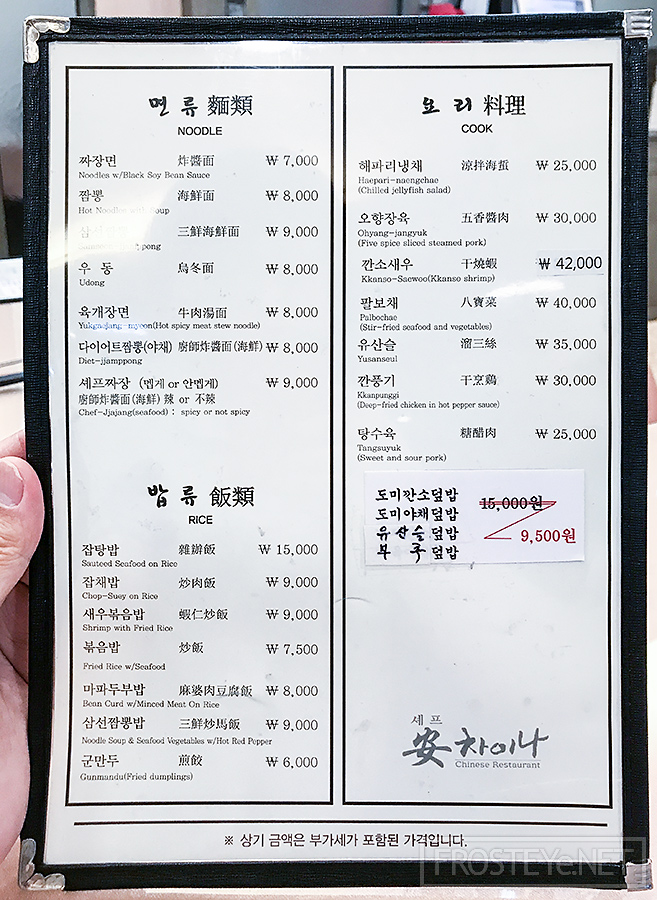 면 류 麵類
NOODLE
짜장면 炸醬面 ₩ 7,000
Noodles w/Black Soy Bean Sauce
짬뽕 海鮮面 ₩ 8,000
Hot Noodles with Soup
三鮮海鮮面 ₩ 9,000
우 동 烏冬面 ₩ 8,000
Udong
육개장면 牛肉湯面 ₩ 8,000
Yukgaejang-myeon(Hot spicy meat stew noodle)
다이어트짬뽕(야채) 廚師炸醬面(海鮮) ₩ 8,000
Diet-jjamppong
셰프짜장 (멥게 or 안멥게) ₩ 9,000
廚師炸醬面(海鮮) 辣 or 不辣
Chef-Jjajang(seafood) : spicy or not spicy
밥 류 飯類
RICE
잡탕밥 雜瓣飯 ₩ 15,000
Sauteed Seafood on Rice
잡채밥 炒肉飯 ₩ 9,000
Chop-Suey on Rice
새우볶음밥 蝦仁炒飯 ₩ 9,000
Shrimp with Fried Rice
볶음밥 炒飯 ₩ 7,500
Fried Rice w/Seafood
마파두부밥 麻婆肉豆腐飯 ₩ 8,000
Bean Curd w/Minced Meat On Rice
삼선짬뽕밥 三鮮炒馬飯 ₩ 9,000
Noodle Soup & Seafood Vegetables w/Hot Red Pepper
군만두 煎餃 ₩ 6,000
Gunmandu(Fried dumplings)
요 리 料理
COOK
해파리냉채 涼拌海蜇 ₩ 25,000
Haepari-naengchae
(Chilled jellyfish salad)
오향장육 五香醬肉 ₩ 30,000
Ohyang-jangyuk
(Five spice sliced steamed pork)
깐소새우 干燒蝦 ₩ 42,000
Kkanso-Saewoo(Kkanso shrimp)
팔보채 八寶菜 ₩ 40,000
Palbochae
(Stir-fried seafood and vegetables)
유산슬 溜三絲 ₩ 35,000
Yusanseul
깐풍기 干烹鷄 ₩ 30,000
Kkanpunggi
(Deep-fried chicken in hot pepper sauce)
탕수육 糖醋肉 ₩ 25,000
Tangsuyuk
(Sweet and sour pork)
도미깐소덮밥 15,000원
도미야채덮밥
유산슬덮밥 9,500원
부 추 덮밥
셰프
安 차이나
Chinese Restaurant
※ 상기 금액은 부가세가 포함된 가격입니다.
FROSTEYe.NET